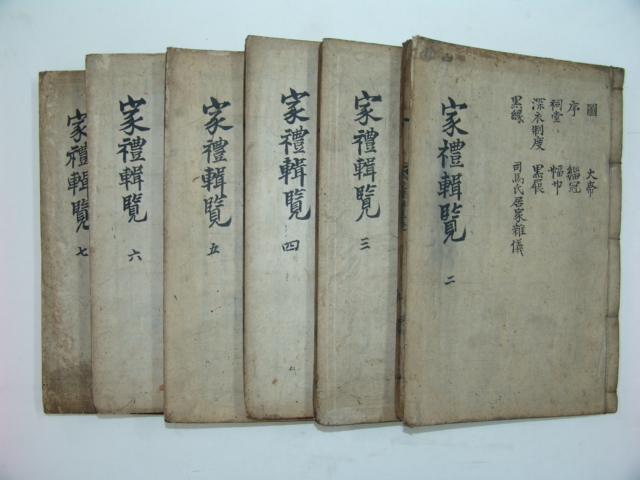 圖 大帶
序 緇冠
祠堂 幅巾
深衣制度 黑履
黑緣 司馬氏居家雜儀
家禮輯覽 二
家禮輯覽 三
家禮輯覽 四
家禮輯覽 五
家禮輯覽 六
家禮輯覽 七